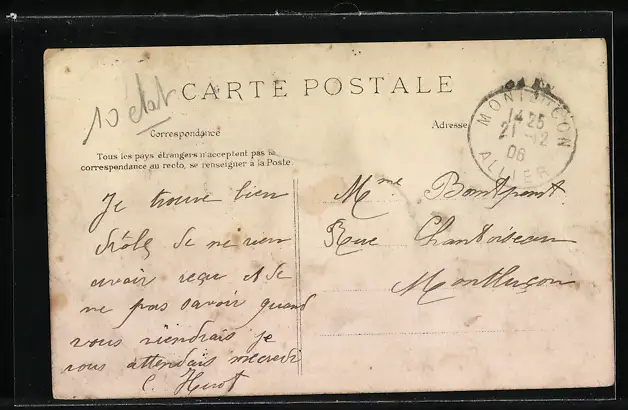 10 etat
CARTE POSTALE
Correspondance
Adresse
Tous les pays étrangers n'acceptent pas la
correspondance au recto, se renseigner à la Poste.
MONTLUÇON
14 25
21 -12
06
ALLIER
Je trouve bien
drôle de ne rien
avoir reçu et de
ne pas savoir quand
vous viendrais je
vous attendais mecredi
C.
Mme
Rue Chantoiseau
Montluçon